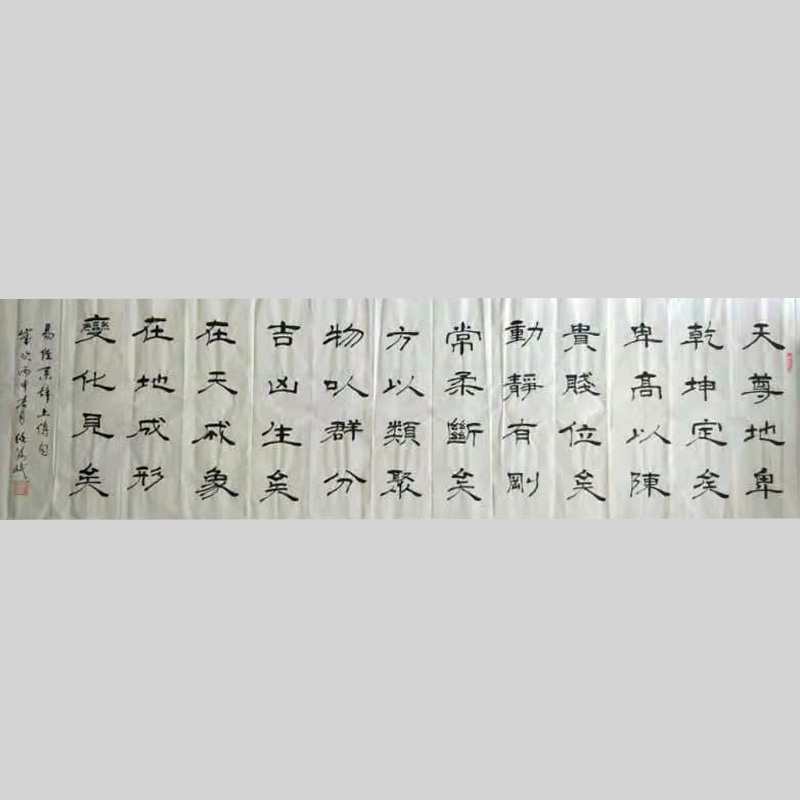 天尊地卑
乾坤定矣
卑高以陳
貴賤位矣
動靜有剛
常柔斷矣
方以類聚
物以群分
吉凶生矣
在天成象
在地成形
變化見矣
易經繫辭上傳句
歲次丙申